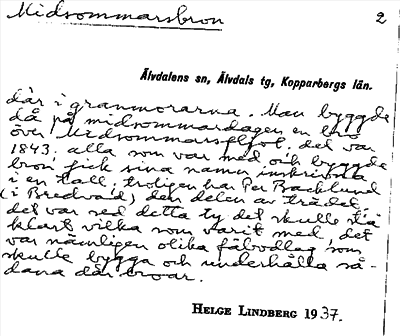 Midsommarsbron
2
Älvdalens sn, Älvdals tg, Kopparbergs län.
där i granmorarna. Man byggde
då på midsommardagen en bro
över Midsommarsfljot. det var
1843. alla som var med och byggde
bron fick sina namn inskrivna
i en tall, troligen har Per Backlund
(i Bredvad) den delen av trädet
det var sed detta ty det skulle stå
klart vilka som varit med, det
var nämligen olika fäbodlag som
skulle bygga och underhålla så-
dana där broar.
HELGE LINDBERG 1937.